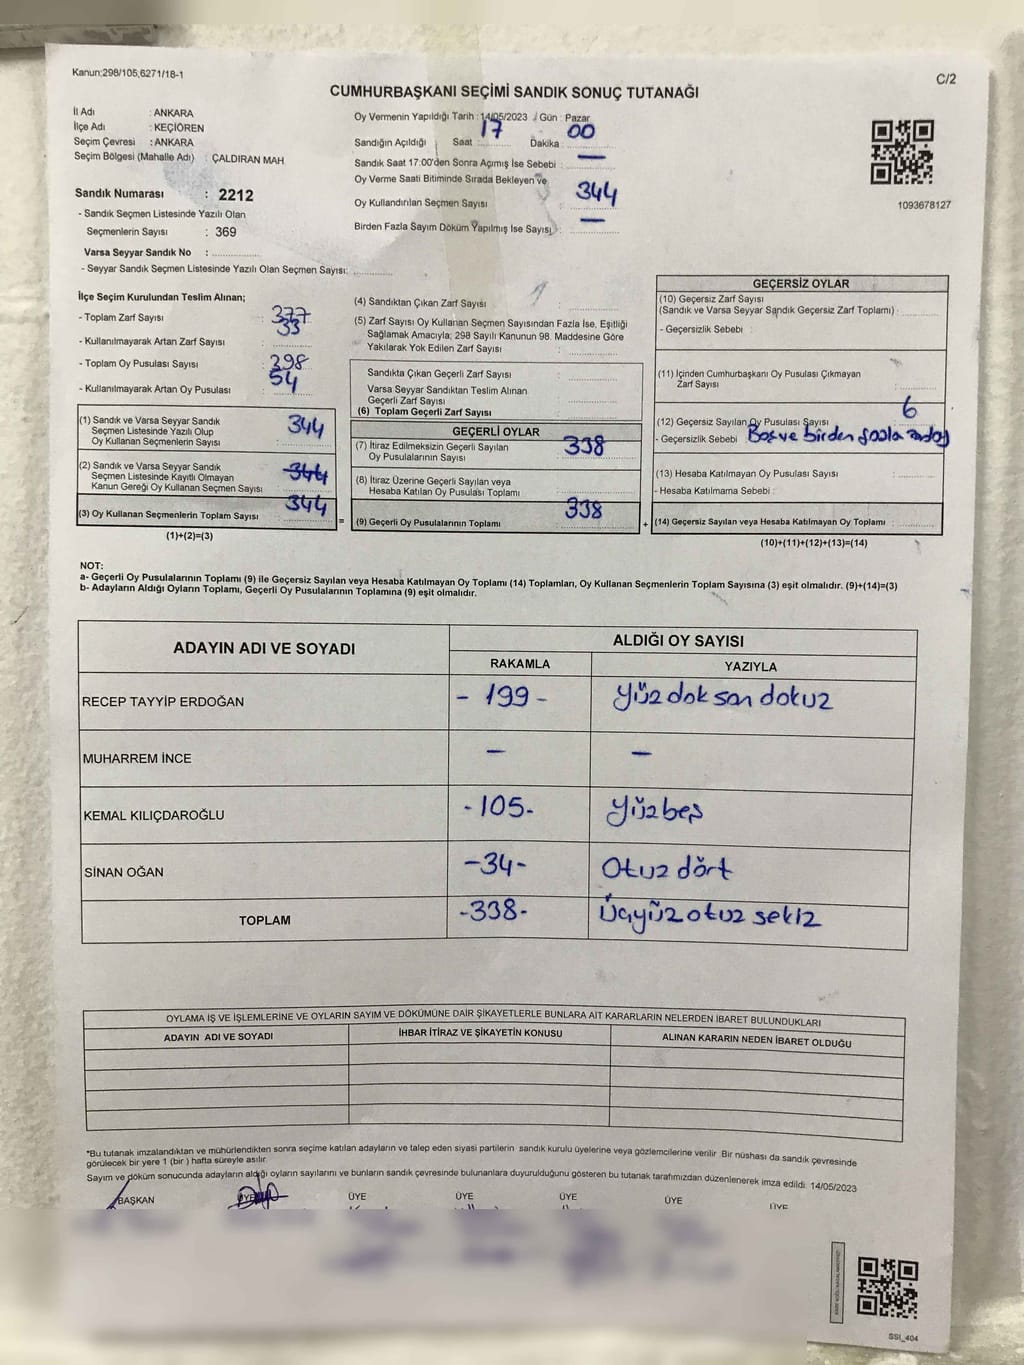 Kanun:298/105,6271/18-1
C/2
CUMHURBAŞKANI SEÇİMİ SANDIK SONUÇ TUTANAĞI
İl Adı : ANKARA
İlçe Adı : KEÇİÖREN
Seçim Çevresi : ANKARA
Seçim Bölgesi (Mahalle Adı) : ÇALDIRAN MAH
Sandık Numarası : 2212
- Sandık Seçmen Listesinde Yazılı Olan
Seçmenlerin Sayısı : 369
Varsa Seyyar Sandık No :
- Seyyar Sandık Seçmen Listesinde Yazılı Olan Seçmen Sayısı:
Oy Vermenin Yapıldığı Tarih : 14/05/2023 / Gün : Pazar
Sandığın Açıldığı Saat : 17 Dakika : 00
Sandık Saat 17:00'den Sonra Açımış İse Sebebi : —
Oy Verme Saati Bitiminde Sırada Bekleyen ve
Oy Kullandırılan Seçmen Sayısı : 344
Birden Fazla Sayım Döküm Yapılmış İse Sayısı : —
1093678127
İlçe Seçim Kurulundan Teslim Alınan;
- Toplam Zarf Sayısı : 377
- Kullanılmayarak Artan Zarf Sayısı : 33
- Toplam Oy Pusulası Sayısı : 398
- Kullanılmayarak Artan Oy Pusulası : 54
(1) Sandık ve Varsa Seyyar Sandık
Seçmen Listesinde Yazılı Olup
Oy Kullanan Seçmenlerin Sayısı : 344
(2) Sandık ve Varsa Seyyar Sandık
Seçmen Listesinde Kayıtlı Olmayan
Kanun Gereği Oy Kullanan Seçmen Sayısı : 344
(3) Oy Kullanan Seçmenlerin Toplam Sayısı : 344
(1)+(2)=(3)
=
(4) Sandıktan Çıkan Zarf Sayısı :
(5) Zarf Sayısı Oy Kullanan Seçmen Sayısından Fazla İse, Eşitliği
Sağlamak Amacıyla; 298 Sayılı Kanunun 98. Maddesine Göre
Yakılarak Yok Edilen Zarf Sayısı :
Sandıkta Çıkan Geçerli Zarf Sayısı :
Varsa Seyyar Sandıktan Teslim Alınan
Geçerli Zarf Sayısı :
(6) Toplam Geçerli Zarf Sayısı :
GEÇERLİ OYLAR
(7) İtiraz Edilmeksizin Geçerli Sayılan
Oy Pusulalarının Sayısı : 338
(8) İtiraz Üzerine Geçerli Sayılan veya
Hesaba Katılan Oy Pusulası Toplamı :
(9) Geçerli Oy Pusulalarının Toplamı : 338
+
GEÇERSİZ OYLAR
(10) Geçersiz Zarf Sayısı
(Sandık ve Varsa Seyyar Sandık Geçersiz Zarf Toplamı) :
- Geçersizlik Sebebi :
(11) İçinden Cumhurbaşkanı Oy Pusulası Çıkmayan
Zarf Sayısı :
(12) Geçersiz Sayılan Oy Pusulası Sayısı : 6
- Geçersizlik Sebebi Boş ve birden fazla
(13) Hesaba Katılmayan Oy Pusulası Sayısı :
- Hesaba Katılmama Sebebi :
(14) Geçersiz Sayılan veya Hesaba Katılmayan Oy Toplamı :
(10)+(11)+(12)+(13)=(14)
NOT:
a- Geçerli Oy Pusulalarının Toplamı (9) ile Geçersiz Sayılan veya Hesaba Katılmayan Oy Toplamı (14) Toplamları, Oy Kullanan Seçmenlerin Toplam Sayısına (3) eşit olmalıdır. (9)+(14)=(3)
b- Adayların Aldığı Oyların Toplamı, Geçerli Oy Pusulalarının Toplamına (9) eşit olmalıdır.
ADAYIN ADI VE SOYADI
ALDIĞI OY SAYISI
RAKAMLA YAZIYLA
RECEP TAYYİP ERDOĞAN - 199 - yüz dok san dokuz
MUHARREM İNCE — —
KEMAL KILIÇDAROĞLU - 105- yüzbeş
SİNAN OĞAN -34- Otuz dört
TOPLAM -338- Üçyüz otuz sekiz
OYLAMA İŞ VE İŞLEMLERİNE VE OYLARIN SAYIM VE DÖKÜMÜNE DAİR ŞİKAYETLERLE BUNLARA AİT KARARLARIN NELERDEN İBARET BULUNDUKLARI
ADAYIN ADI VE SOYADI İHBAR İTİRAZ VE ŞİKAYETİN KONUSU ALINAN KARARIN NEDEN İBARET OLDUĞU
*Bu tutanak imzalandıktan ve mühürlendikten sonra seçime katılan adayların ve talep eden siyasi partilerin sandık kurulu üyelerine veya gözlemcilerine verilir. Bir nüshası da sandık çevresinde
görülecek bir yere 1 (bir) hafta süreyle asılır.
Sayım ve döküm sonucunda adayların aldığı oyların sayılarını ve bunların sandık çevresinde bulunanlara duyurulduğunu gösteren bu tutanak tarafımızdan düzenlenerek imza edildi: 14/05/2023
BAŞKAN ÜYE ÜYE ÜYE ÜYE ÜYE ÜYE
SSI_404